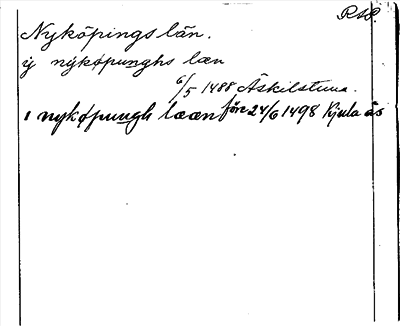 RAP.
Nyköpings län.
ij nýkøpunghs læn
6/5 1488 Äskilstuna.
i nykøpungh lææn före 24/6 1498 Kjula ås